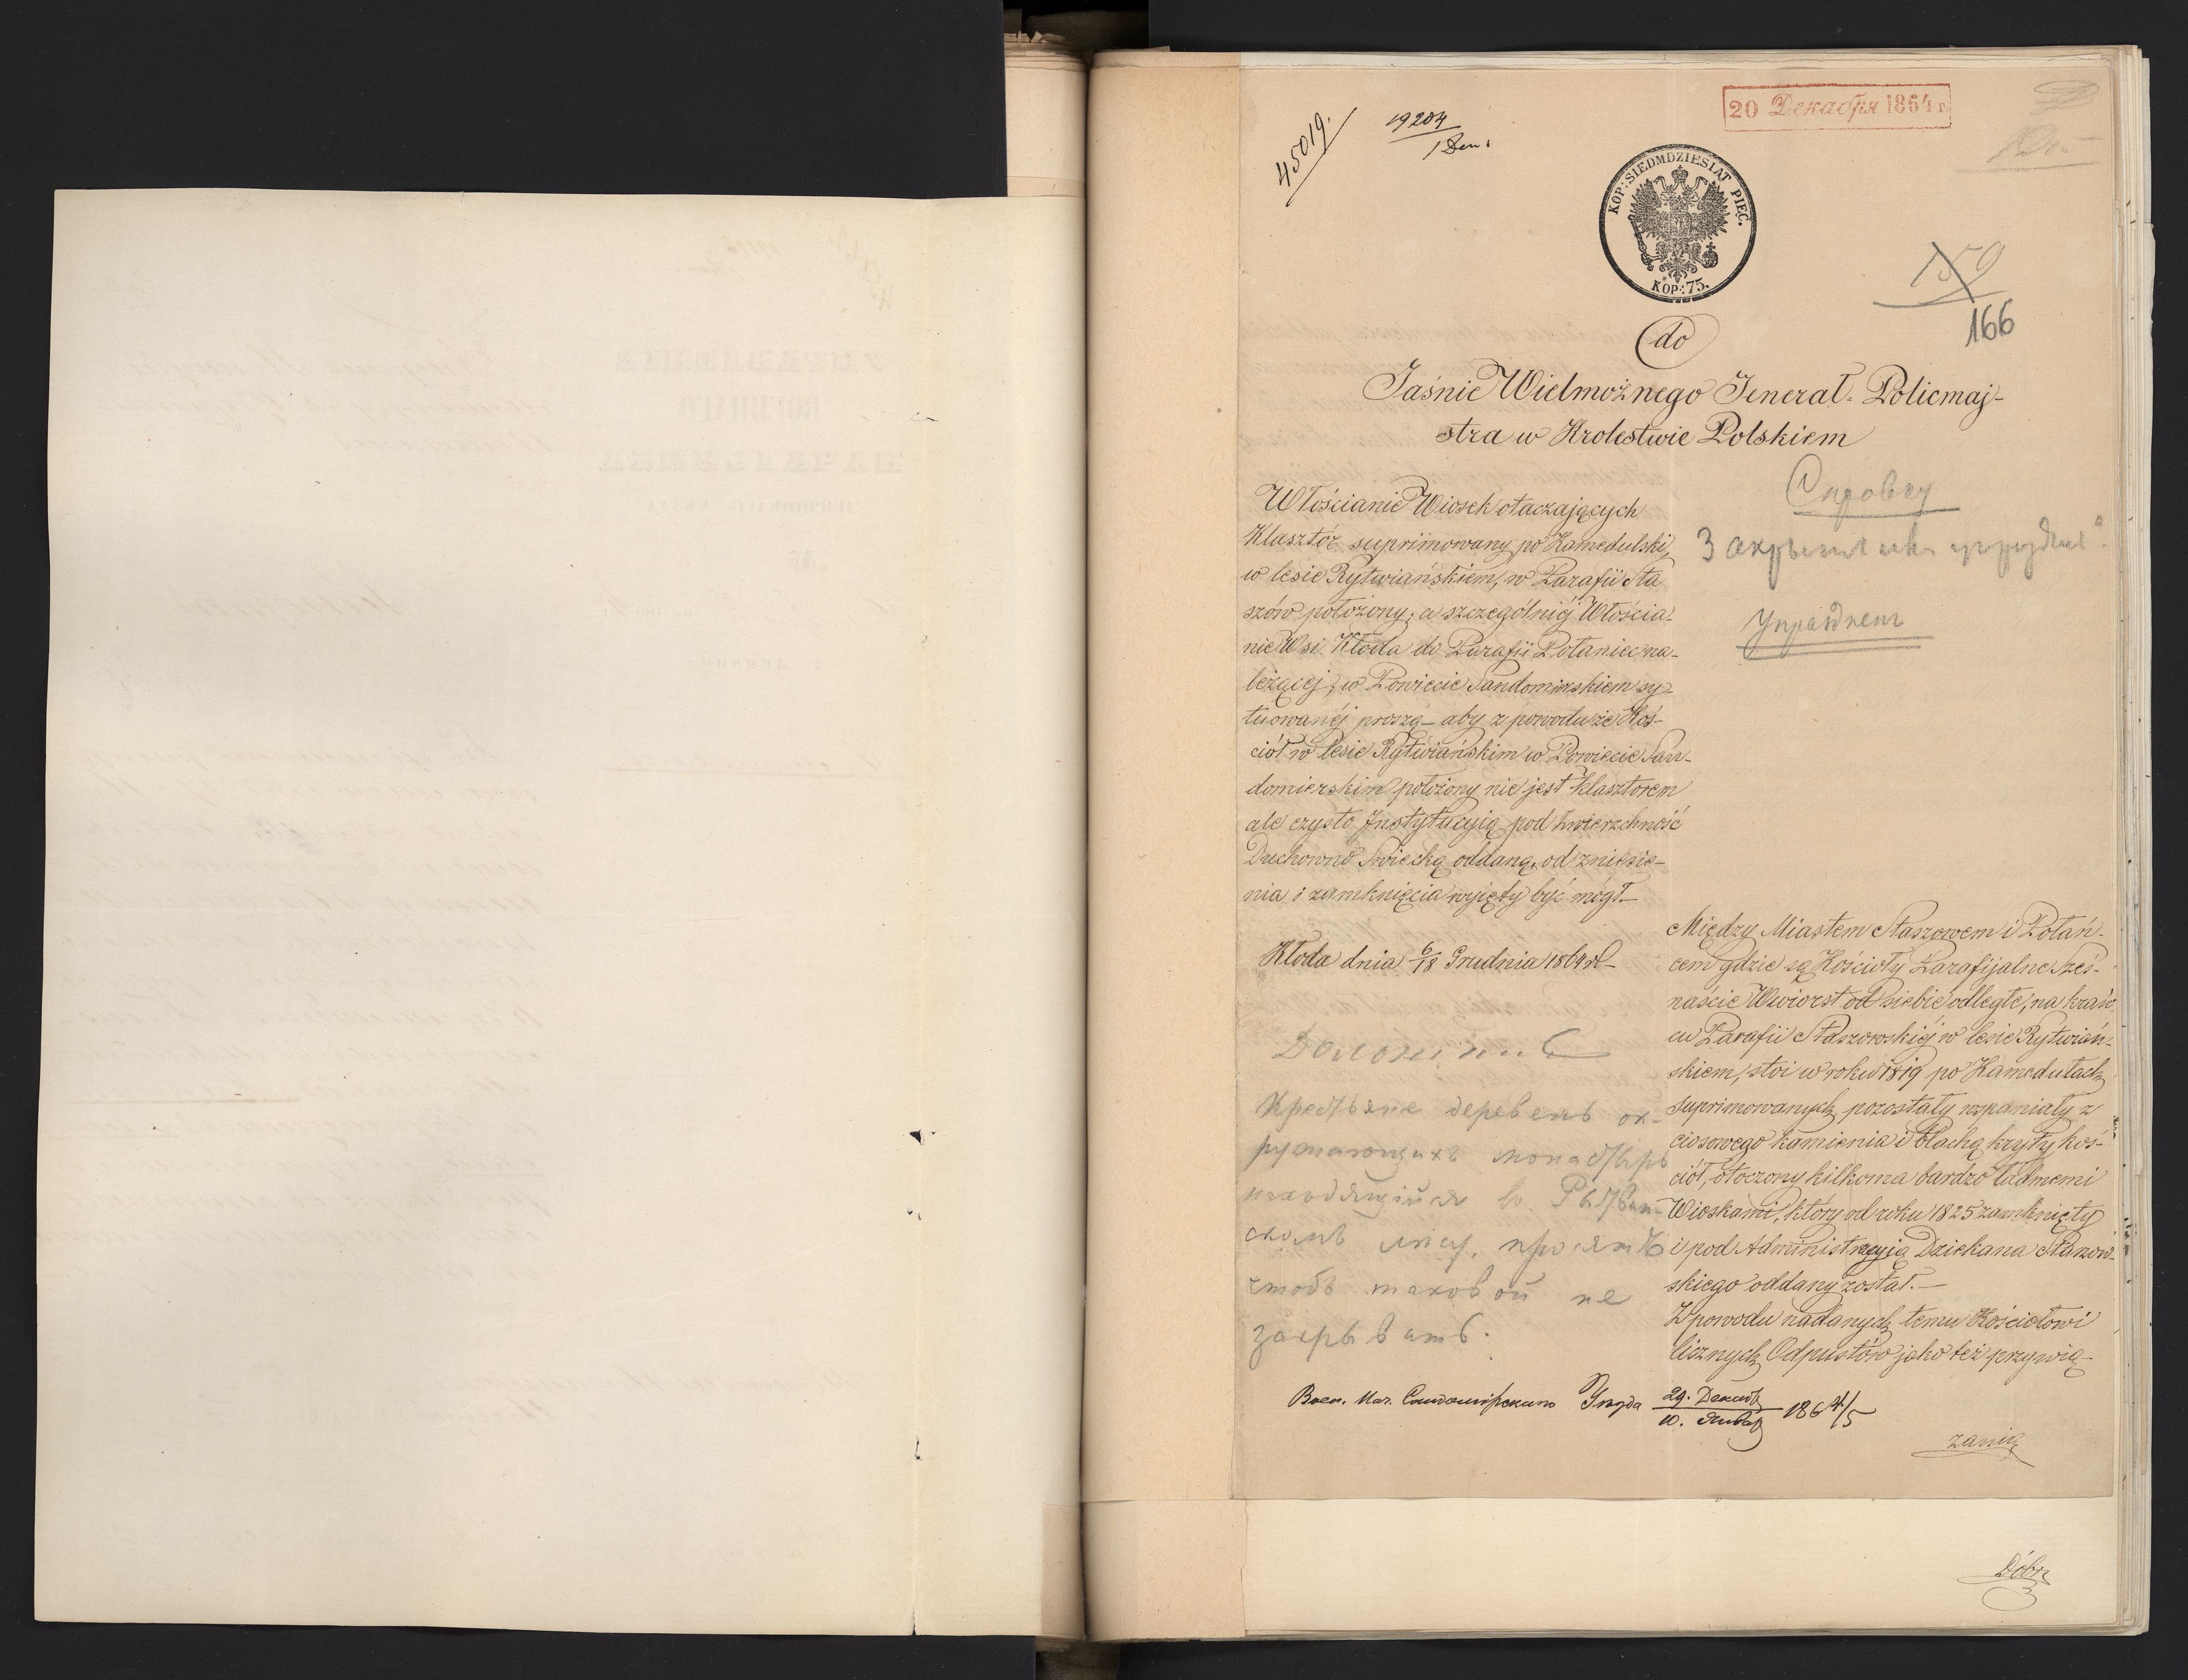 45019.
19204
1 Деп.
20 Декабря 1864 г.
KOP: SIEDMDZIESIAT PIĘC.
KOP: 75.
150
166
do
Jaśnie Wielmożnego Jenerał-Policmaj-
stra w Krolestwie Polskiem
Włościanie Wiosek otaczających
Klasztór suprimowany po Kamedulski,
w lesie Rytwiańskiem, w Parafii Sta
szów położony, a szczególniéj Włościa-
nie Wsi Kłoda do Parafii Połaniec na-
leżącéj, w Powiecie Sandomirskiem sy-
tuowanéj proszą – aby z powodu że Koś-
ciół w lesie Rytwiańskim w Powiecie San-
domierskim położony nie jest klasztorem
ale czysto Instytucyią pod zwierzchność
Duchowno Swiecką oddaną, od zniesie-
nia i zamknięcia wyięty być mógł. –
Kłoda dnia 6/18 Grudnia 1864 r. –
Справку
Закрытъ или упраздн.
Упраздненъ
Доложить
Крестьяне деревень ок-
ружающихъ монастырь
находящійся въ Рытвян-
скомъ лѣсу, просятъ
чтобъ таковой не
закрывать.
Между Miastem Staszowem i Połań-
cem gdzie są Kościoły Parafijalne Szes-
naście Wwiorst od siebie odległe, na krań-
cu Parafii Staszowskiéj w lesie Rytwiań-
skiem, stoi w roku 1819 po Kamedułach
suprimowanych pozostały wspaniały z
ciosowego kamienia i blachą kryty koś-
ciół, otoczony kilkoma bardzo ludnemi
Wioskami, który od roku 1825 zamknięty
i pod Administracyią Dziekana Staszow-
skiego oddany został. –
Z powodu nadanych temu Kościołowi
licznych Odpustów jako też przywią-
Воен. Нач. Сандомірскаго Уѣзда 29. Декаб/10. Январ 1864/5
zanią
Dóbr